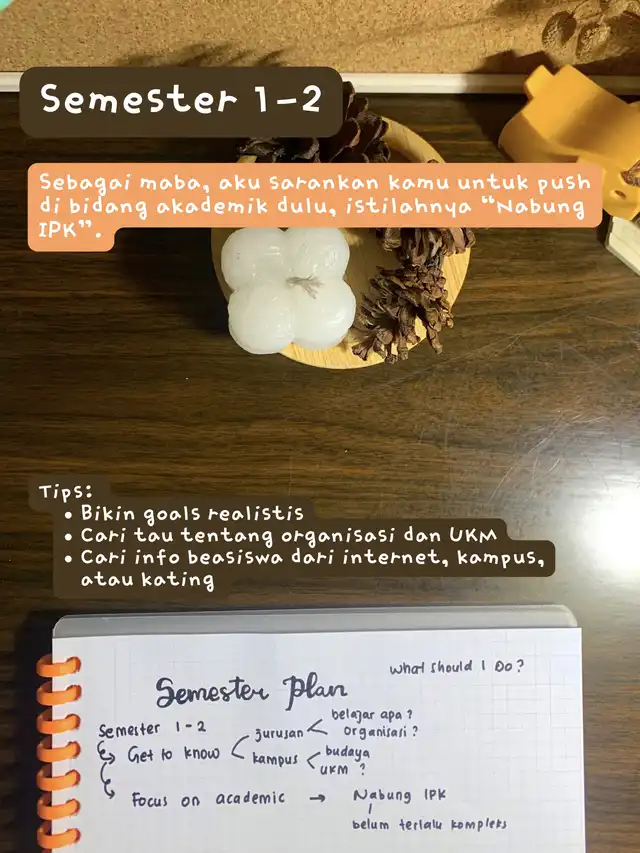 Semester 1-2
Sebagai maba, aku sarankan kamu untuk push
di bidang akademik dulu, istilahnya “Nabung
IPK”.
Tips:
• Bikin goals realistis
• Cari tau tentang organisasi dan UKM
• Cari info beasiswa dari internet, kampus,
atau kating
What should I Do?
Semester Plan
Semester 1-2
Get to know
jurusan
belajar apa?
organisasi?
kampus
budaya
UKM?
Focus on academic → Nabung IPK
belum terlalu kompleks